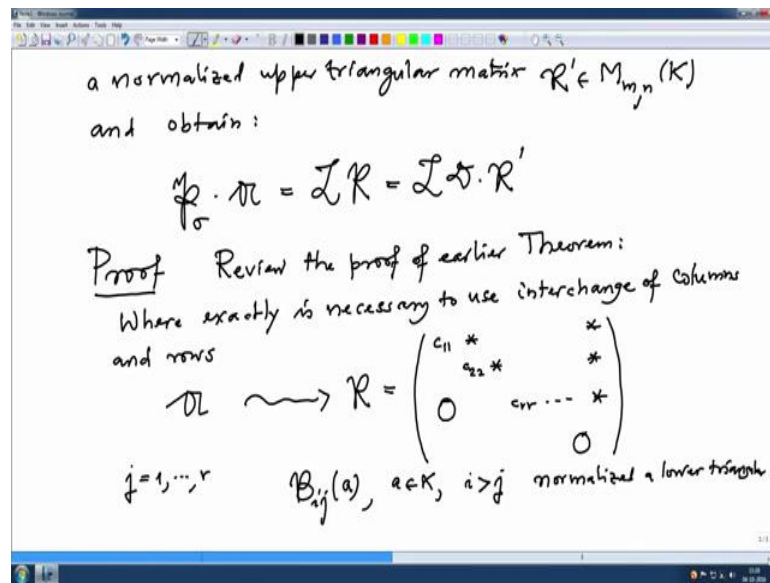 Note1 - Windows Journal
File Edit View Insert Actions Tools Help
Page Width
a normalized upper triangular matrix R' ∈ M_{m,n}(K)
and obtain:
𝔓_σ · 𝔄 = ℒR = ℒ𝔇·R'
Proof Review the proof of earlier Theorem:
Where exactly is necessary to use interchange of columns
and rows
𝔄 ⟿ R = ( c_{11} * *
c_{22} * *
O c_{rr} ... *
O )
j=1,...,r 𝔅_{ij}(a), a∈K, i>j normalized a lower triangular
1/1